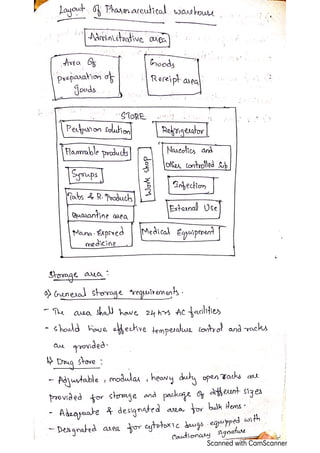 Layout of Pharmaceutical warehouse
Administrative area
Area of
preparation of
goods
Goods
Receipt area
STORE
Perfusion solution
Refrigerator
Flammable products
Narcotics and
Other controlled Sub
Work shop
Syrups
Injection
Tabs & R. Products
External Use
Quarantine area
Mana. Expired
medicine
Medical Equipment
Storage area :
a) General storage requirements.
- The area shall have 24 hrs AC facilities
- Should have effective temperature control and racks
are provided.
b) Drug Store :
- Adjustable, modular, heavy duty open racks are
provided for storage and package of different sizes
- Adequate & designated area for bulk items.
- Designated area for cytotoxic drugs equipped with
cautionary signature
Scanned with CamScanner